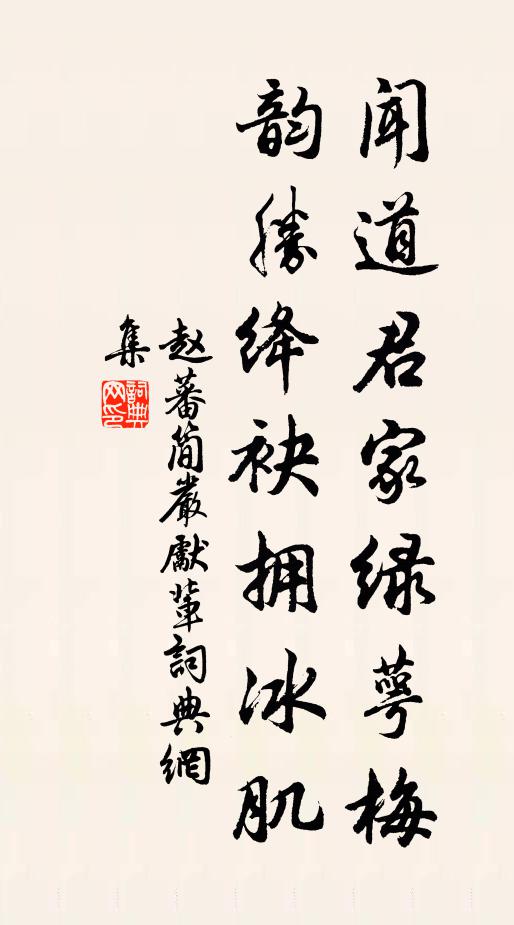 闻道君家绿萼梅
韵胜绛袂拥冰肌
赵蕃简严献辈詞典網
集
詞典网印